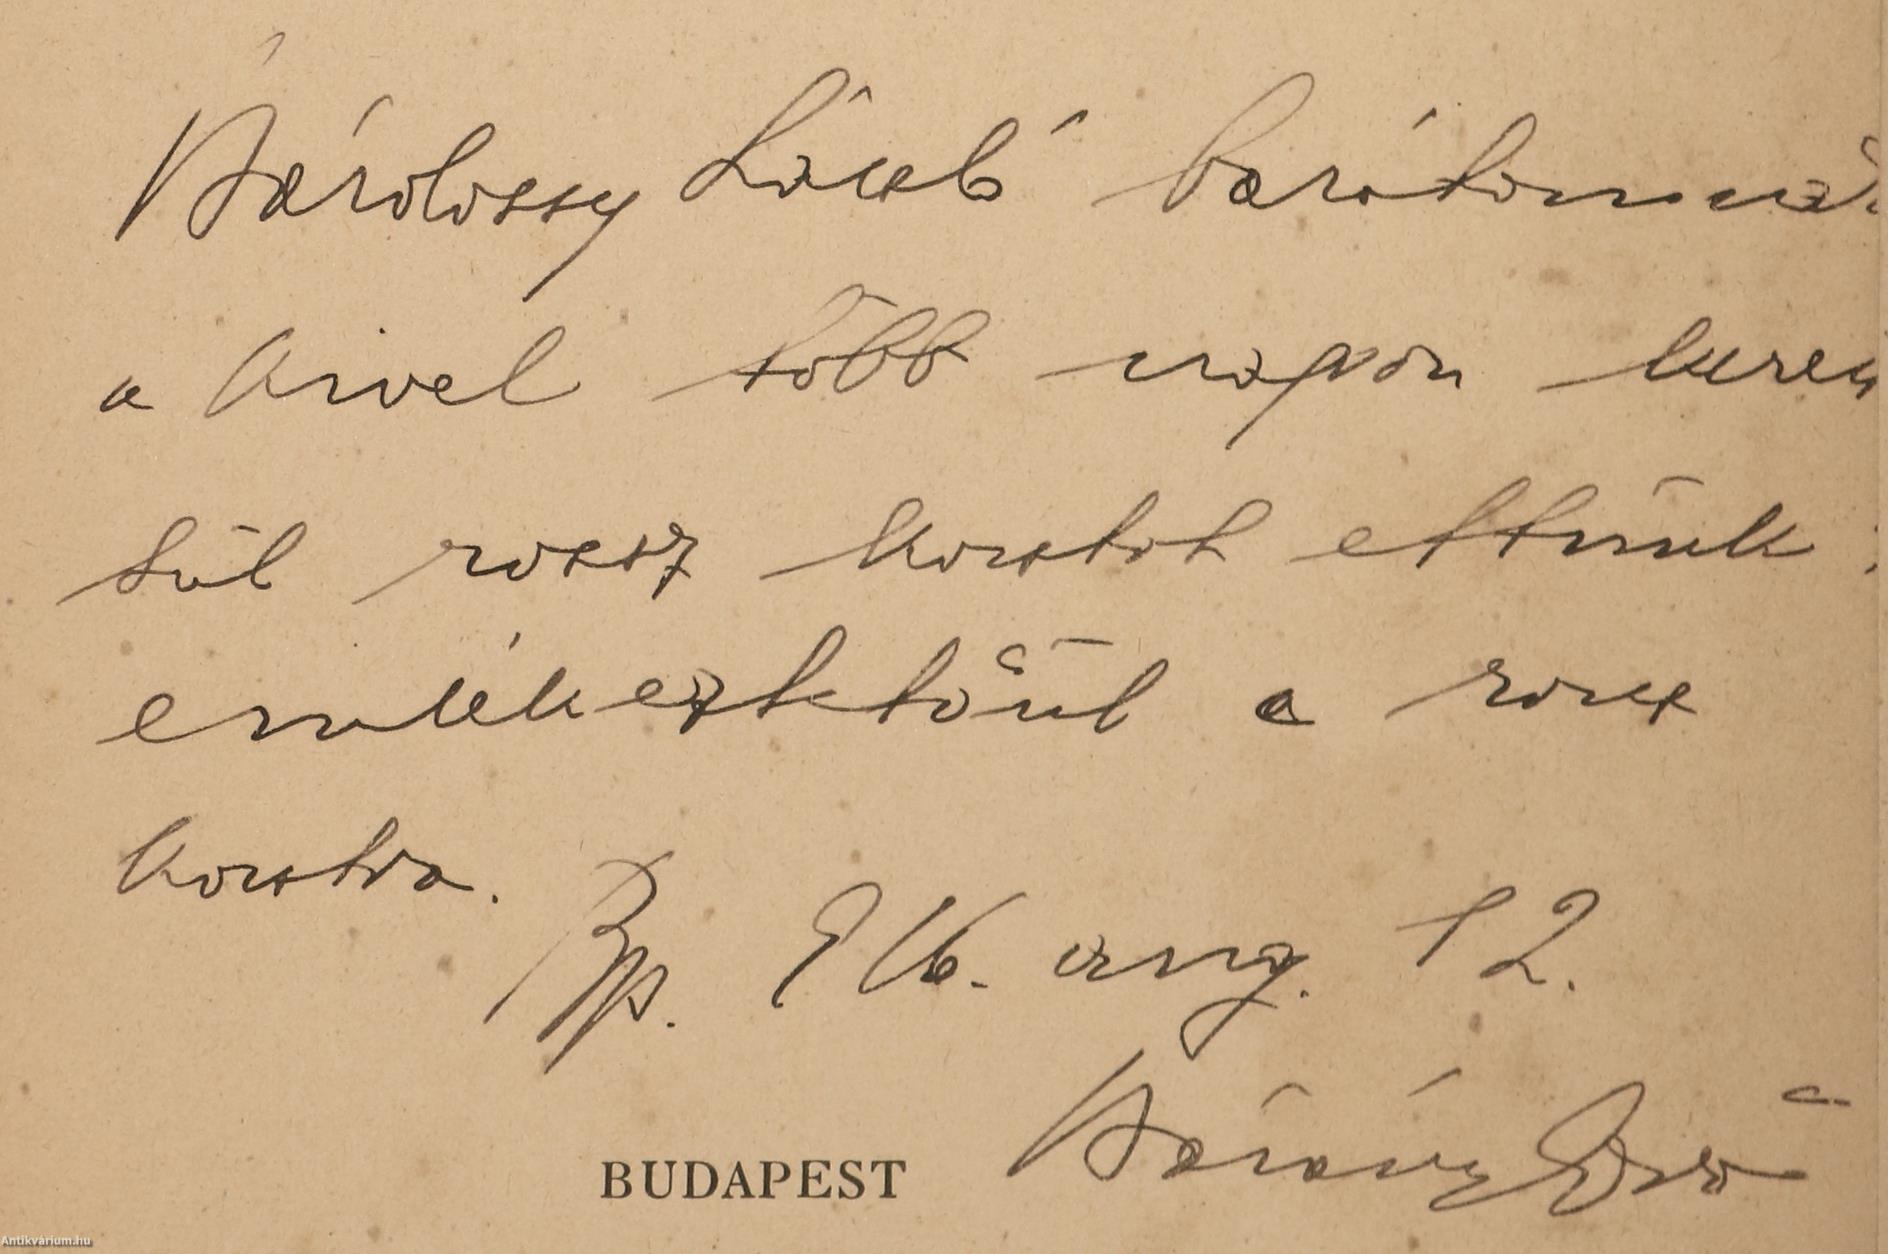 Bárdossy László barátomnak
a kivel több napon keresz
tül rossz kosztot ettünk
emlékeztetőül a rossz
kosztra.
Bp. 916. aug. 12.
BUDAPEST
Antikvárium.hu